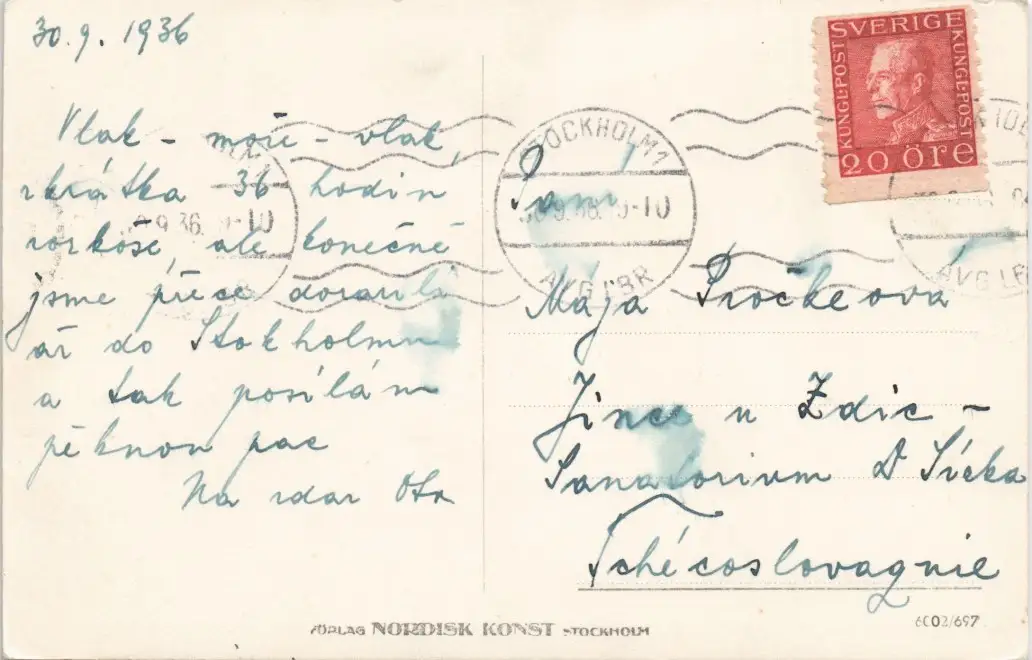 30.9. 1936
Vlak - moře - vlak,
zkrátka 36 hodin
rozkoše, ale konečně
jsme přece dorazili
až do Stokholmu
a tak posílám
pěknou pac
Na zdar Ota
SVERIGE
KUNGL·POST
KUNGL·POST
20 öre
STOCKHOLM 1
Paní
Mája Pročkeova
Jince u Zdic -
Sanatorium D
Tchécoslovaquie
FÖRLAG NORDISK KONST STOCKHOLM
6002/697